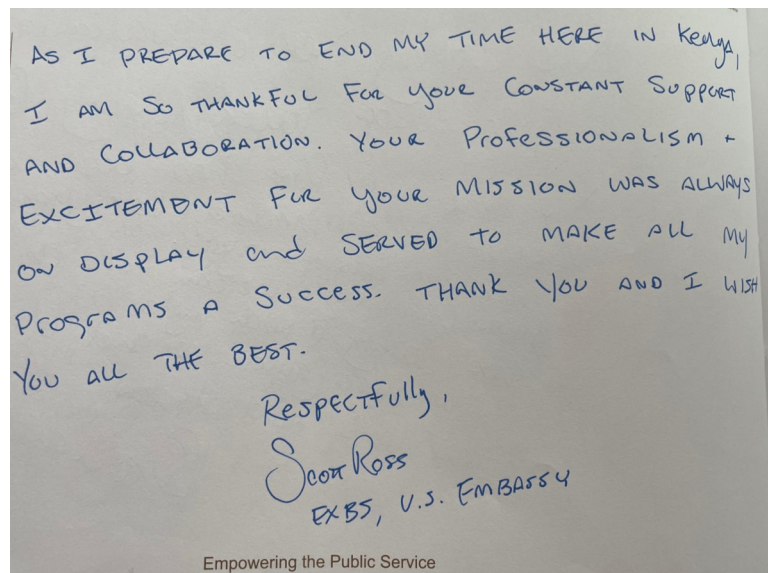 AS I PREPARE TO END MY TIME HERE IN Kenya,
I AM SO THANKFUL FOR YOUR CONSTANT SUPPORT
AND COLLABORATION. YOUR PROFESSIONALISM +
EXCITEMENT FOR YOUR MISSION WAS ALWAYS
ON DISPLAY and SERVED TO MAKE ALL MY
PROGRAMS A SUCCESS. THANK YOU AND I WISH
YOU ALL THE BEST.
RESPECTFully,
Scott Ross
EXBS, U.S. EMBASSY
Empowering the Public Service